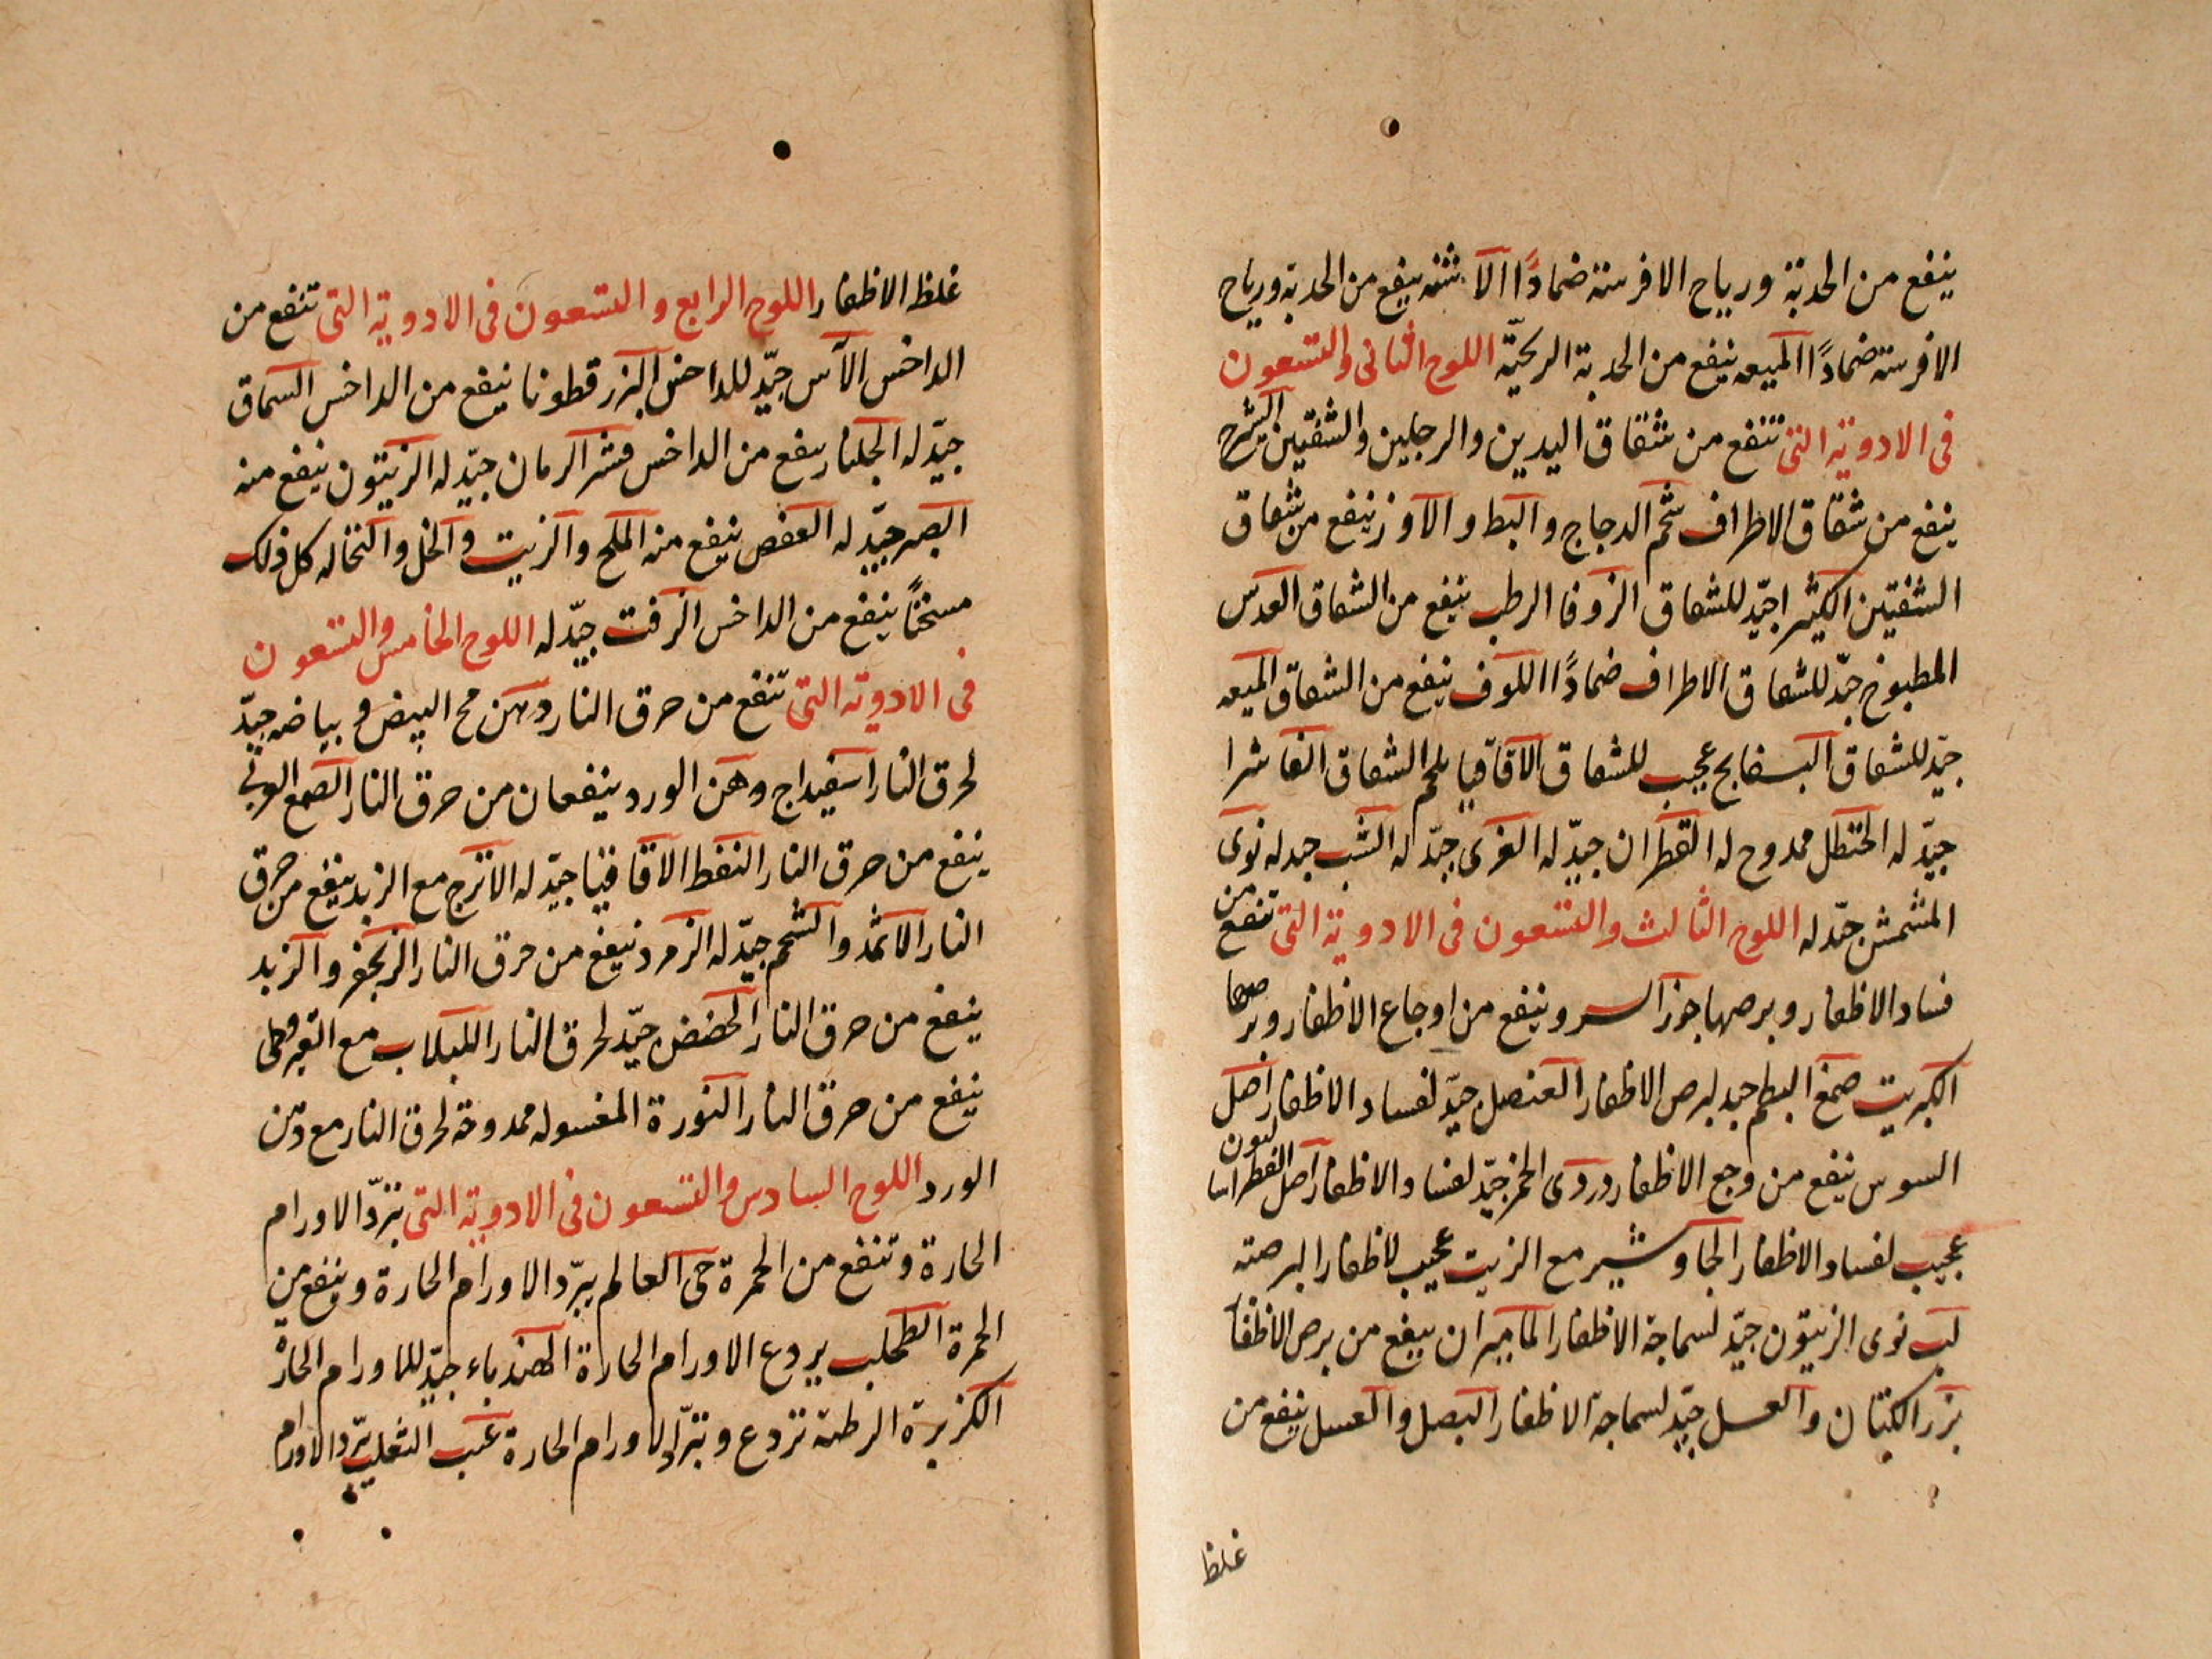 ينفع من الحدبة ورياح الافرسة ضمادًا الاشنه ينفع من الحدبة ورياح
الافرسة ضمادًا الميعه ينفع من الحدبة الريحيّة اللوح الثانى والتسعون
فى الادوية التى تنفع من شقاق اليدين والرجلين والشفتين السرج
ينفع من شقاق الاطراف شحم الدجاج والبط والاوز ينفع من شقاق
الشفتين الكثيرا جيّد للشقاق الزوفا الرطب ينفع من الشقاق العدس
المطبوخ جيّد للشقاق الاطراف ضمادًا اللوف ينفع من الشقاق الميعه
جيّد للشقاق البسفايج عجيب للشقاق الاقاقيا يلحم الشقاق الفاشرا
جيّد له الحنظل ممدوح له القطران جيّد له الغرى جيّد له الشب جيد له نوى
المشمش جيّد له اللوح الثالث والتسعون فى الادوية التى تنفع من
فساد الاظفار وبرصها جوز السرو ينفع من اوجاع الاظفار وبرصها
الكبريت صمغ البطم جيد لبرص الاظفار العنصل جيّد لفساد الاظفار اصل
السوس ينفع من وجع الاظفار دردى الخمر جيّد لفساد الاظفار اصل
عجيب لفساد الاظفار الجاوشير مع الزيت عجيب لاظفار البرصته
لب نوى الزيتون جيّد لسماجة الاظفار الماميران ينفع من برص الاظفا
بزر الكتان والعسل جيّد لسماجة الاظفار البصل والعسل ينفع من
غلظ
غلظ الاظفار اللوح الرابع والتسعون فى الادوية التى تنفع من
الداخس الآس جيّد للداخس البزرقطونا ينفع من الداخس السماق
جيّد له الجلنار ينفع من الداخس قشر الرمان جيّد له الزيتون ينفع منه
البصر جيّد له العفص ينفع منه الملح والزيت والخل والنخاله كل ذلك
مسخنًا ينفع من الداخس الزفت جيّد له اللوح الخامس والتسعون
فى الادوية التى تنفع من حرق النار دهن مح البيض وبياضه جيّد
لحرق النار اسفيداج ودهن الورد ينفعان من حرق النار الصمغ العربى
ينفع من حرق النار النفط الاقاقيا جيّد له الاترج مع الزبد ينفع من حرق
النار الاثمد والشحم جيّد له الزمرد ينفع من حرق النار الزنجفر والزبد
ينفع من حرق النار الحضض جيّد لحرق النار اللبلاب مع القيروطى
ينفع من حرق النار النورة المغسوله ممدوحة لحرق النار مع دهن
الورد اللوح السادس والتسعون فى الادوية التى تبرّد الاورام
الحارة وتنفع من الحمرة حى العالم يبرّد الاورام الحارة وينفع من
الحمرة الطحلب يردع الاورام الحارة الهندباء جيّد للاورام الحارة
الكزبرة الرطبة تردع وتبرّد الاورام الحارة عنب الثعلب يبرّد الاورام